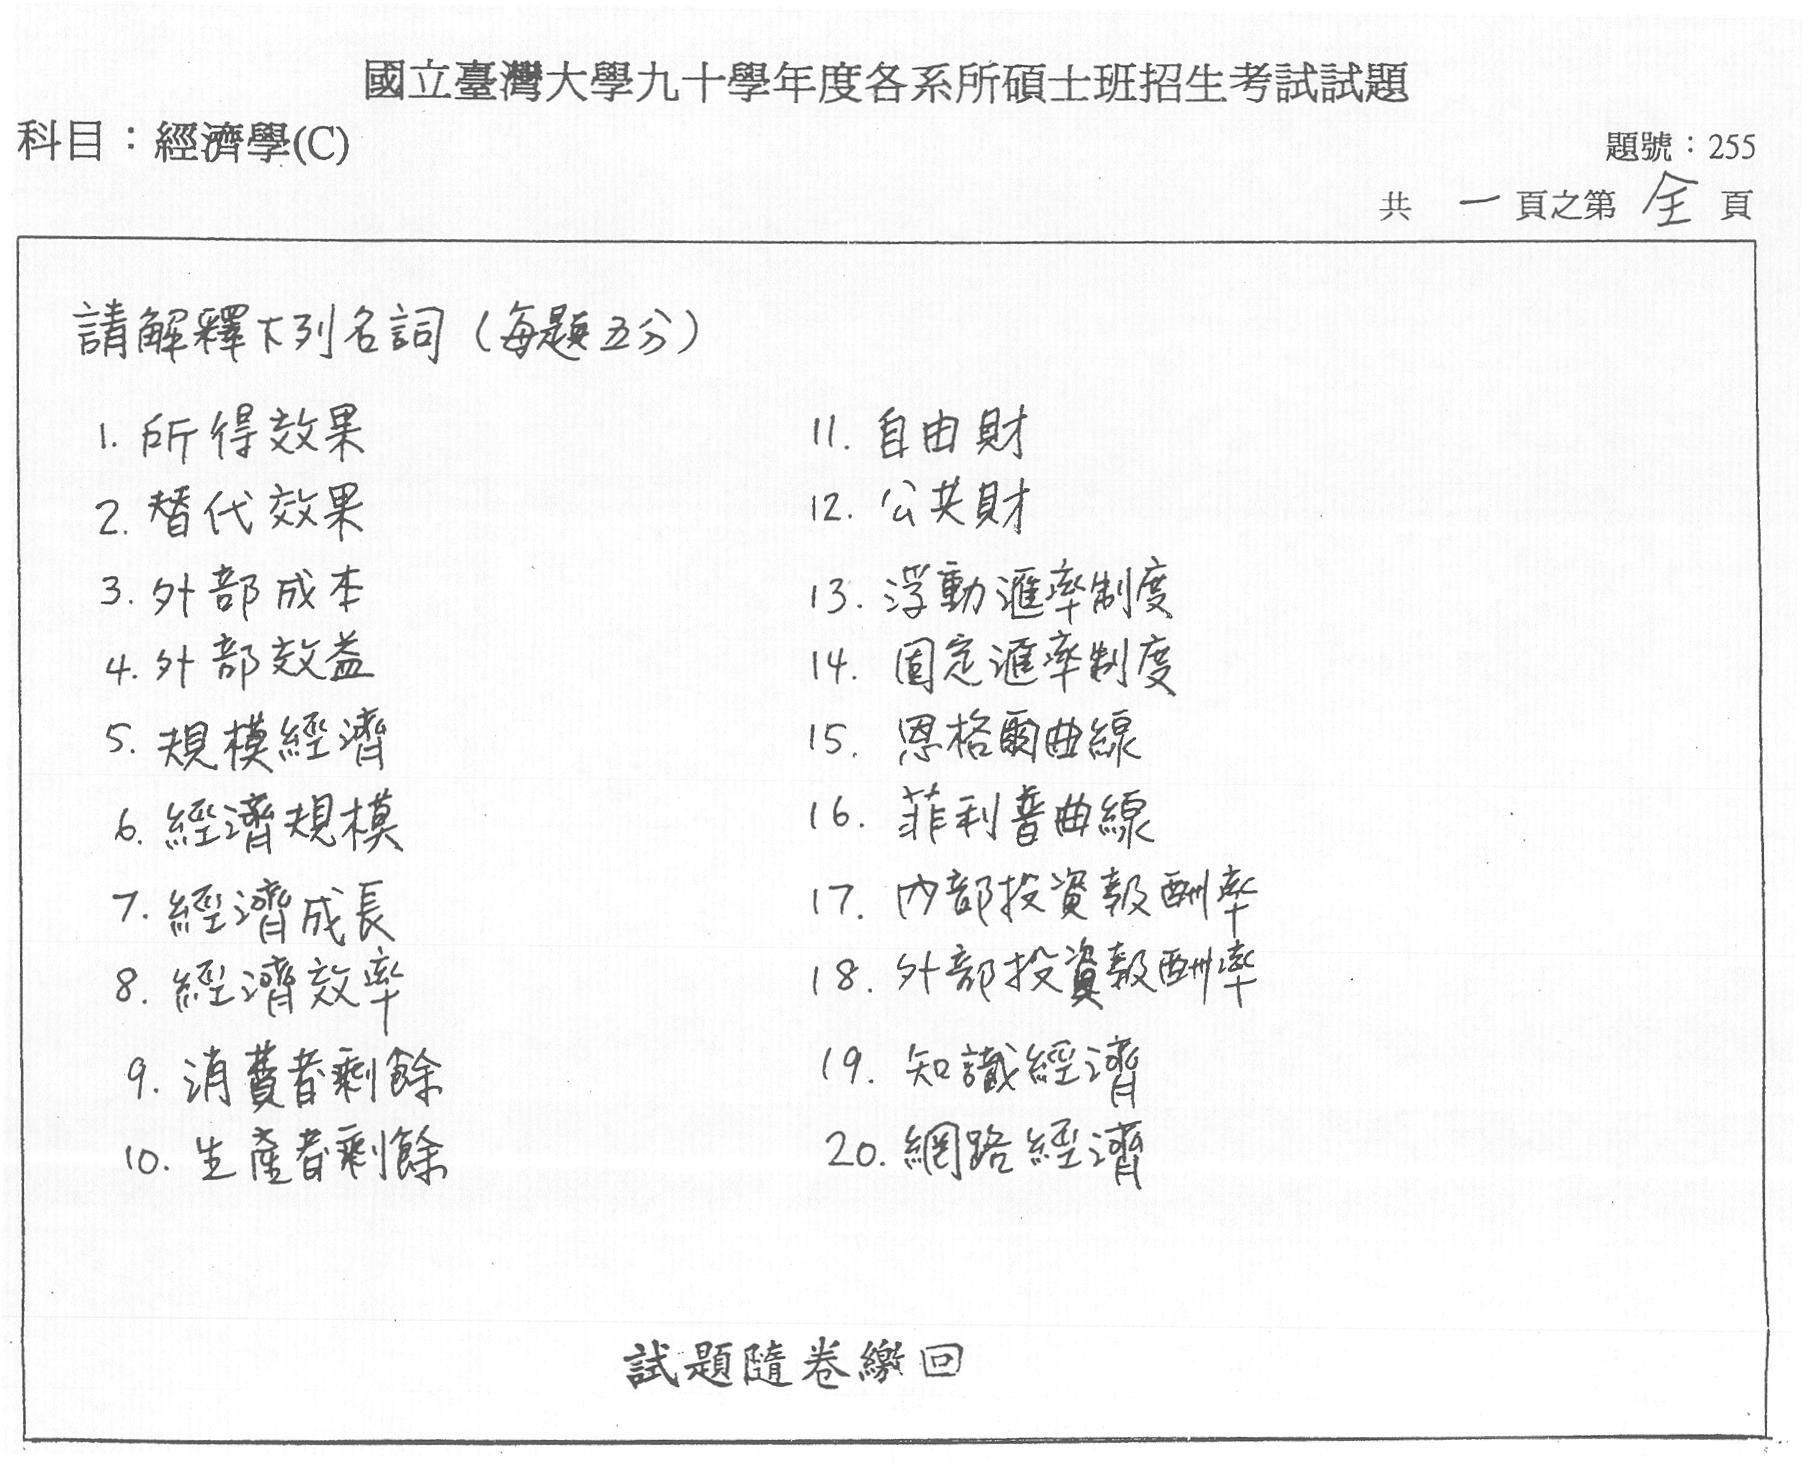 國立臺灣大學九十學年度各系所碩士班招生考試試題
科目：經濟學(C)
題號：255
共 一 頁之第 全 頁
請解釋下列名詞（每題五分）
1. 所得效果
2. 替代效果
3. 外部成本
4. 外部效益
5. 規模經濟
6. 經濟規模
7. 經濟成長
8. 經濟效率
9. 消費者剩餘
10. 生產者剩餘
11. 自由財
12. 公共財
13. 浮動滙率制度
14. 固定滙率制度
15. 恩格爾曲線
16. 菲利普曲線
17. 內部投資報酬率
18. 外部投資報酬率
19. 知識經濟
20. 網路經濟
試題隨卷繳回